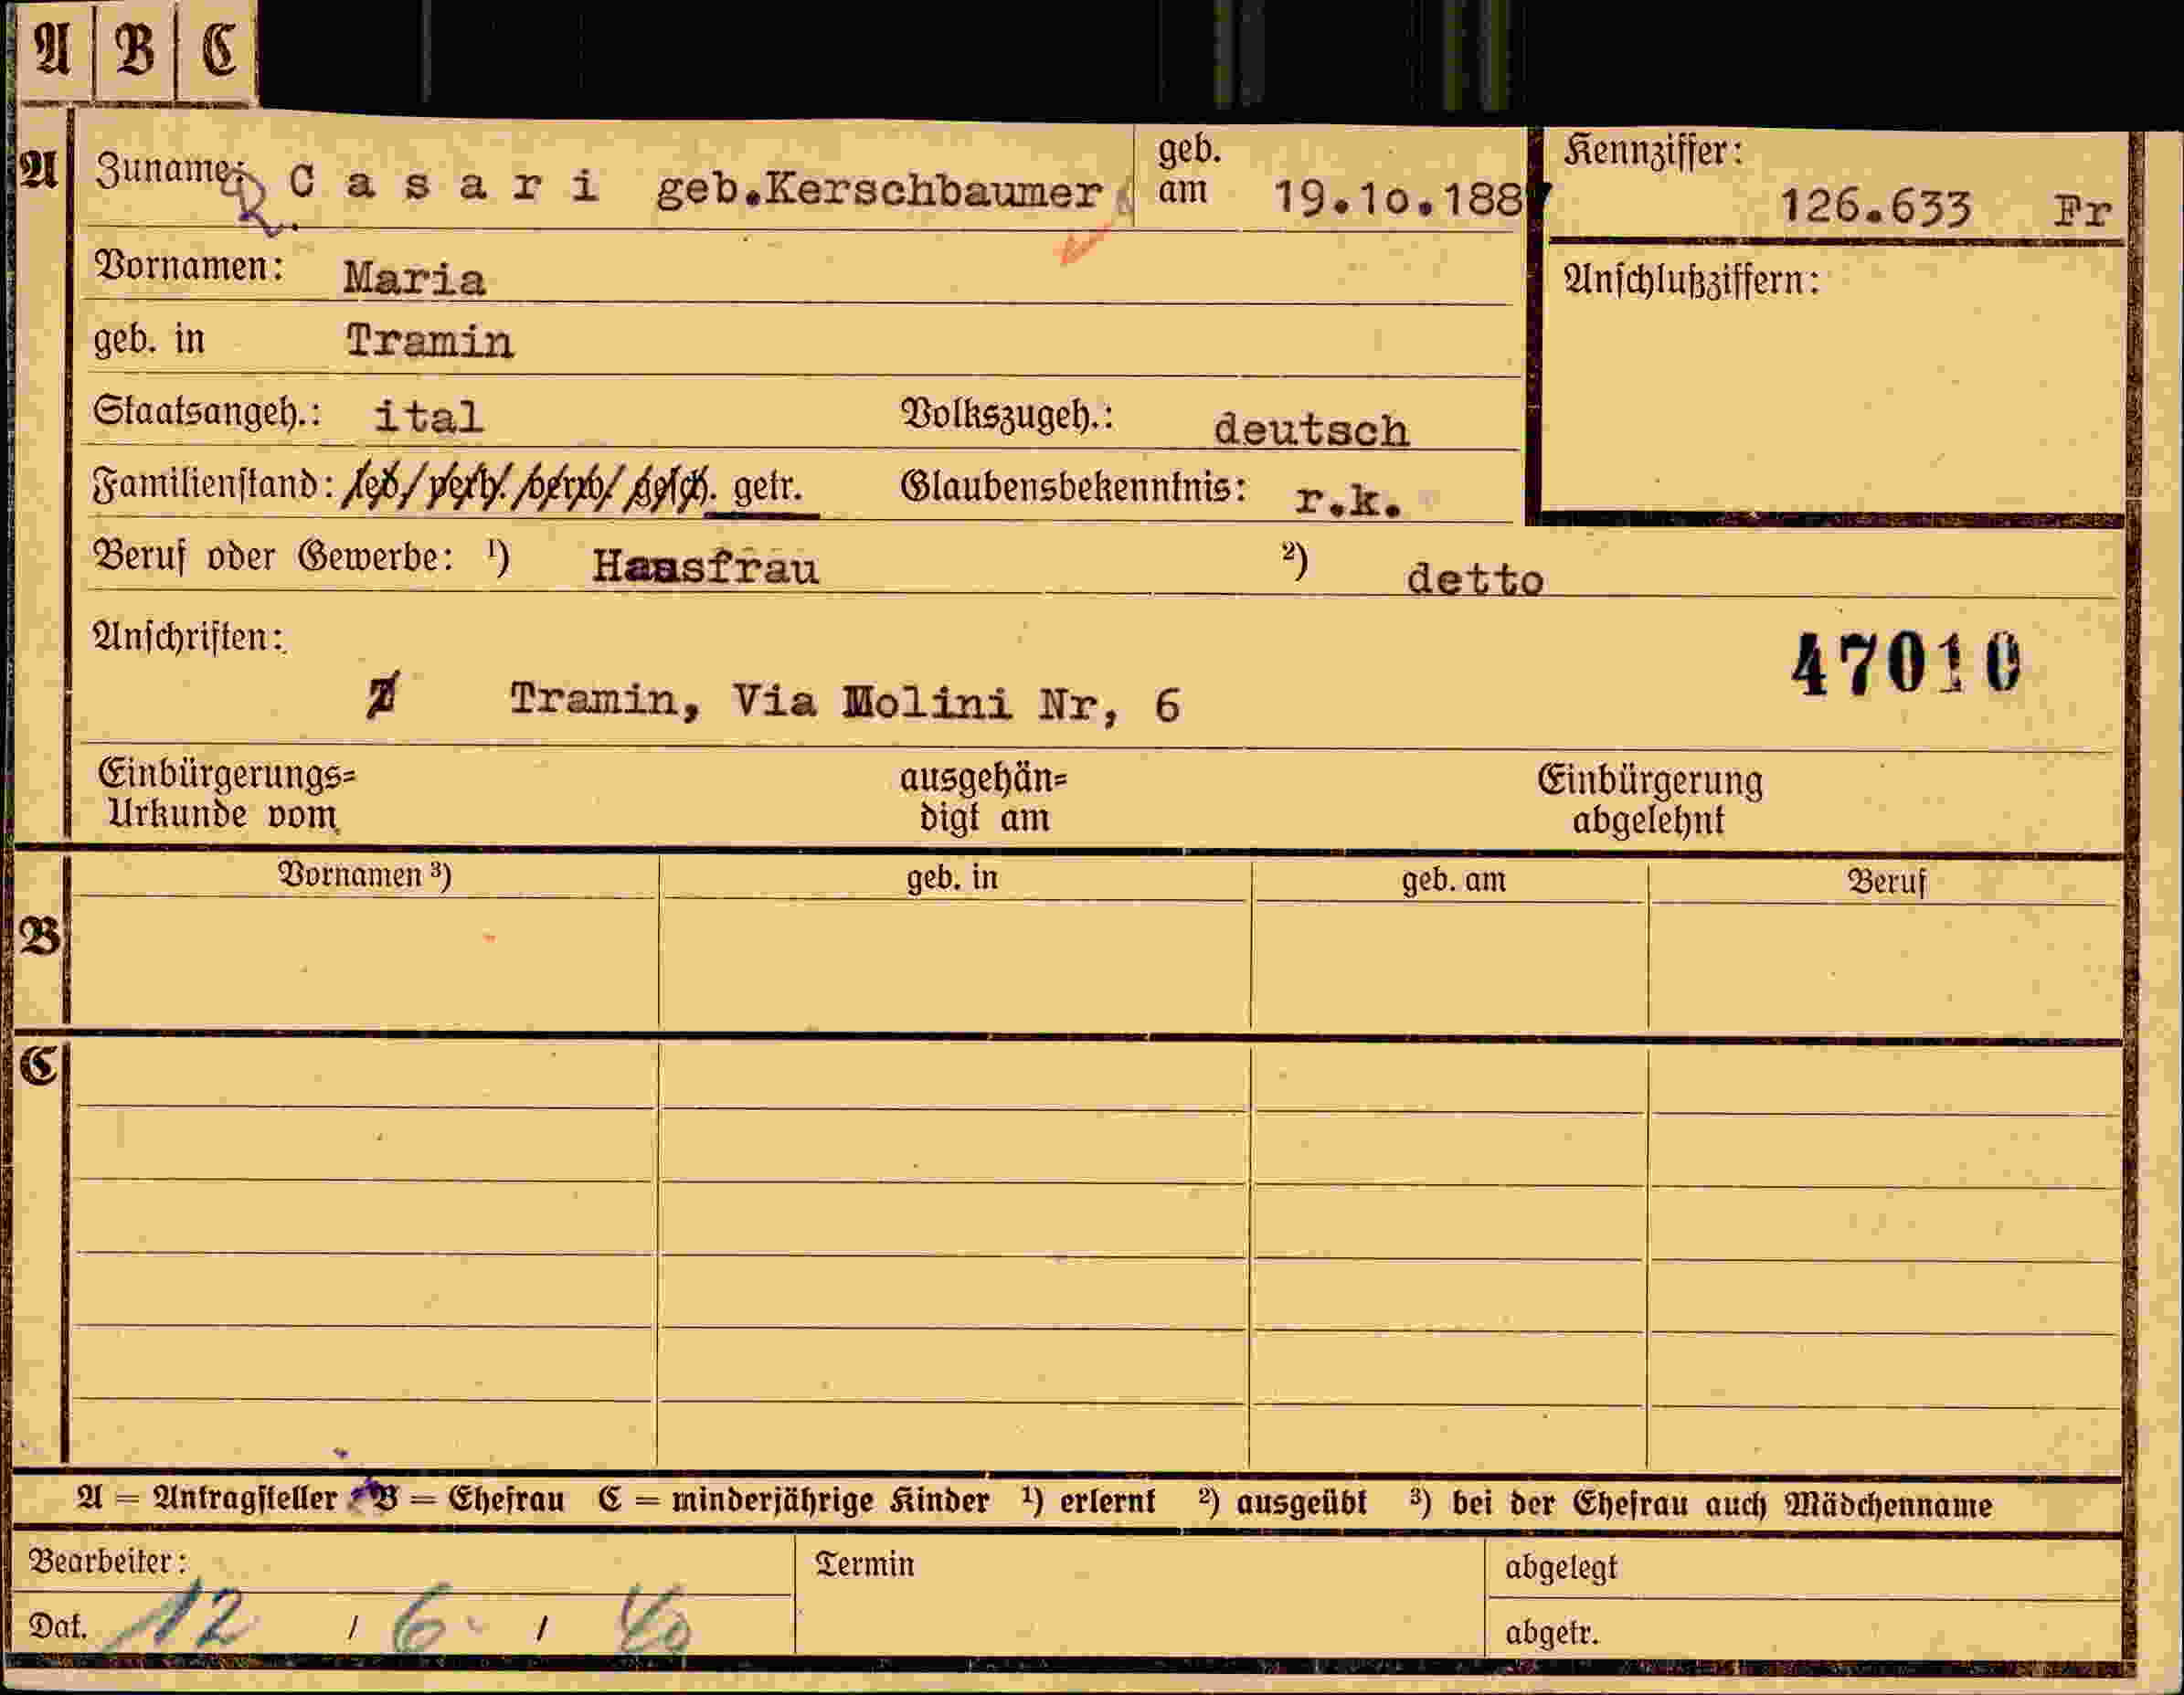 A B C
A
Zuname: R. Casari geb.Kerschbaumer
geb. am 19.10.1887
Kennziffer: 126.633 Fr
Vornamen: Maria
Anschlußziffern:
geb. in Tramin
Staatsangeh.: ital Volkszugeh.: deutsch
Familienstand: led. verh. verw. gesch. getr. Glaubensbekenntnis: r.k.
Beruf oder Gewerbe: ¹) Hausfrau ²) detto
Anschriften: 47010
Tramin, Via Molini Nr, 6
Einbürgerungs= ausgehän= Einbürgerung
Urkunde vom digt am abgelehnt
Vornamen ³) geb. in geb. am Beruf
B
C
A = Antragsteller B = Ehefrau C = minderjährige Kinder ¹) erlernt ²) ausgeübt ³) bei der Ehefrau auch Mädchenname
Bearbeiter: Termin abgelegt
Dat. 12 / 6. / 40 abgetr.